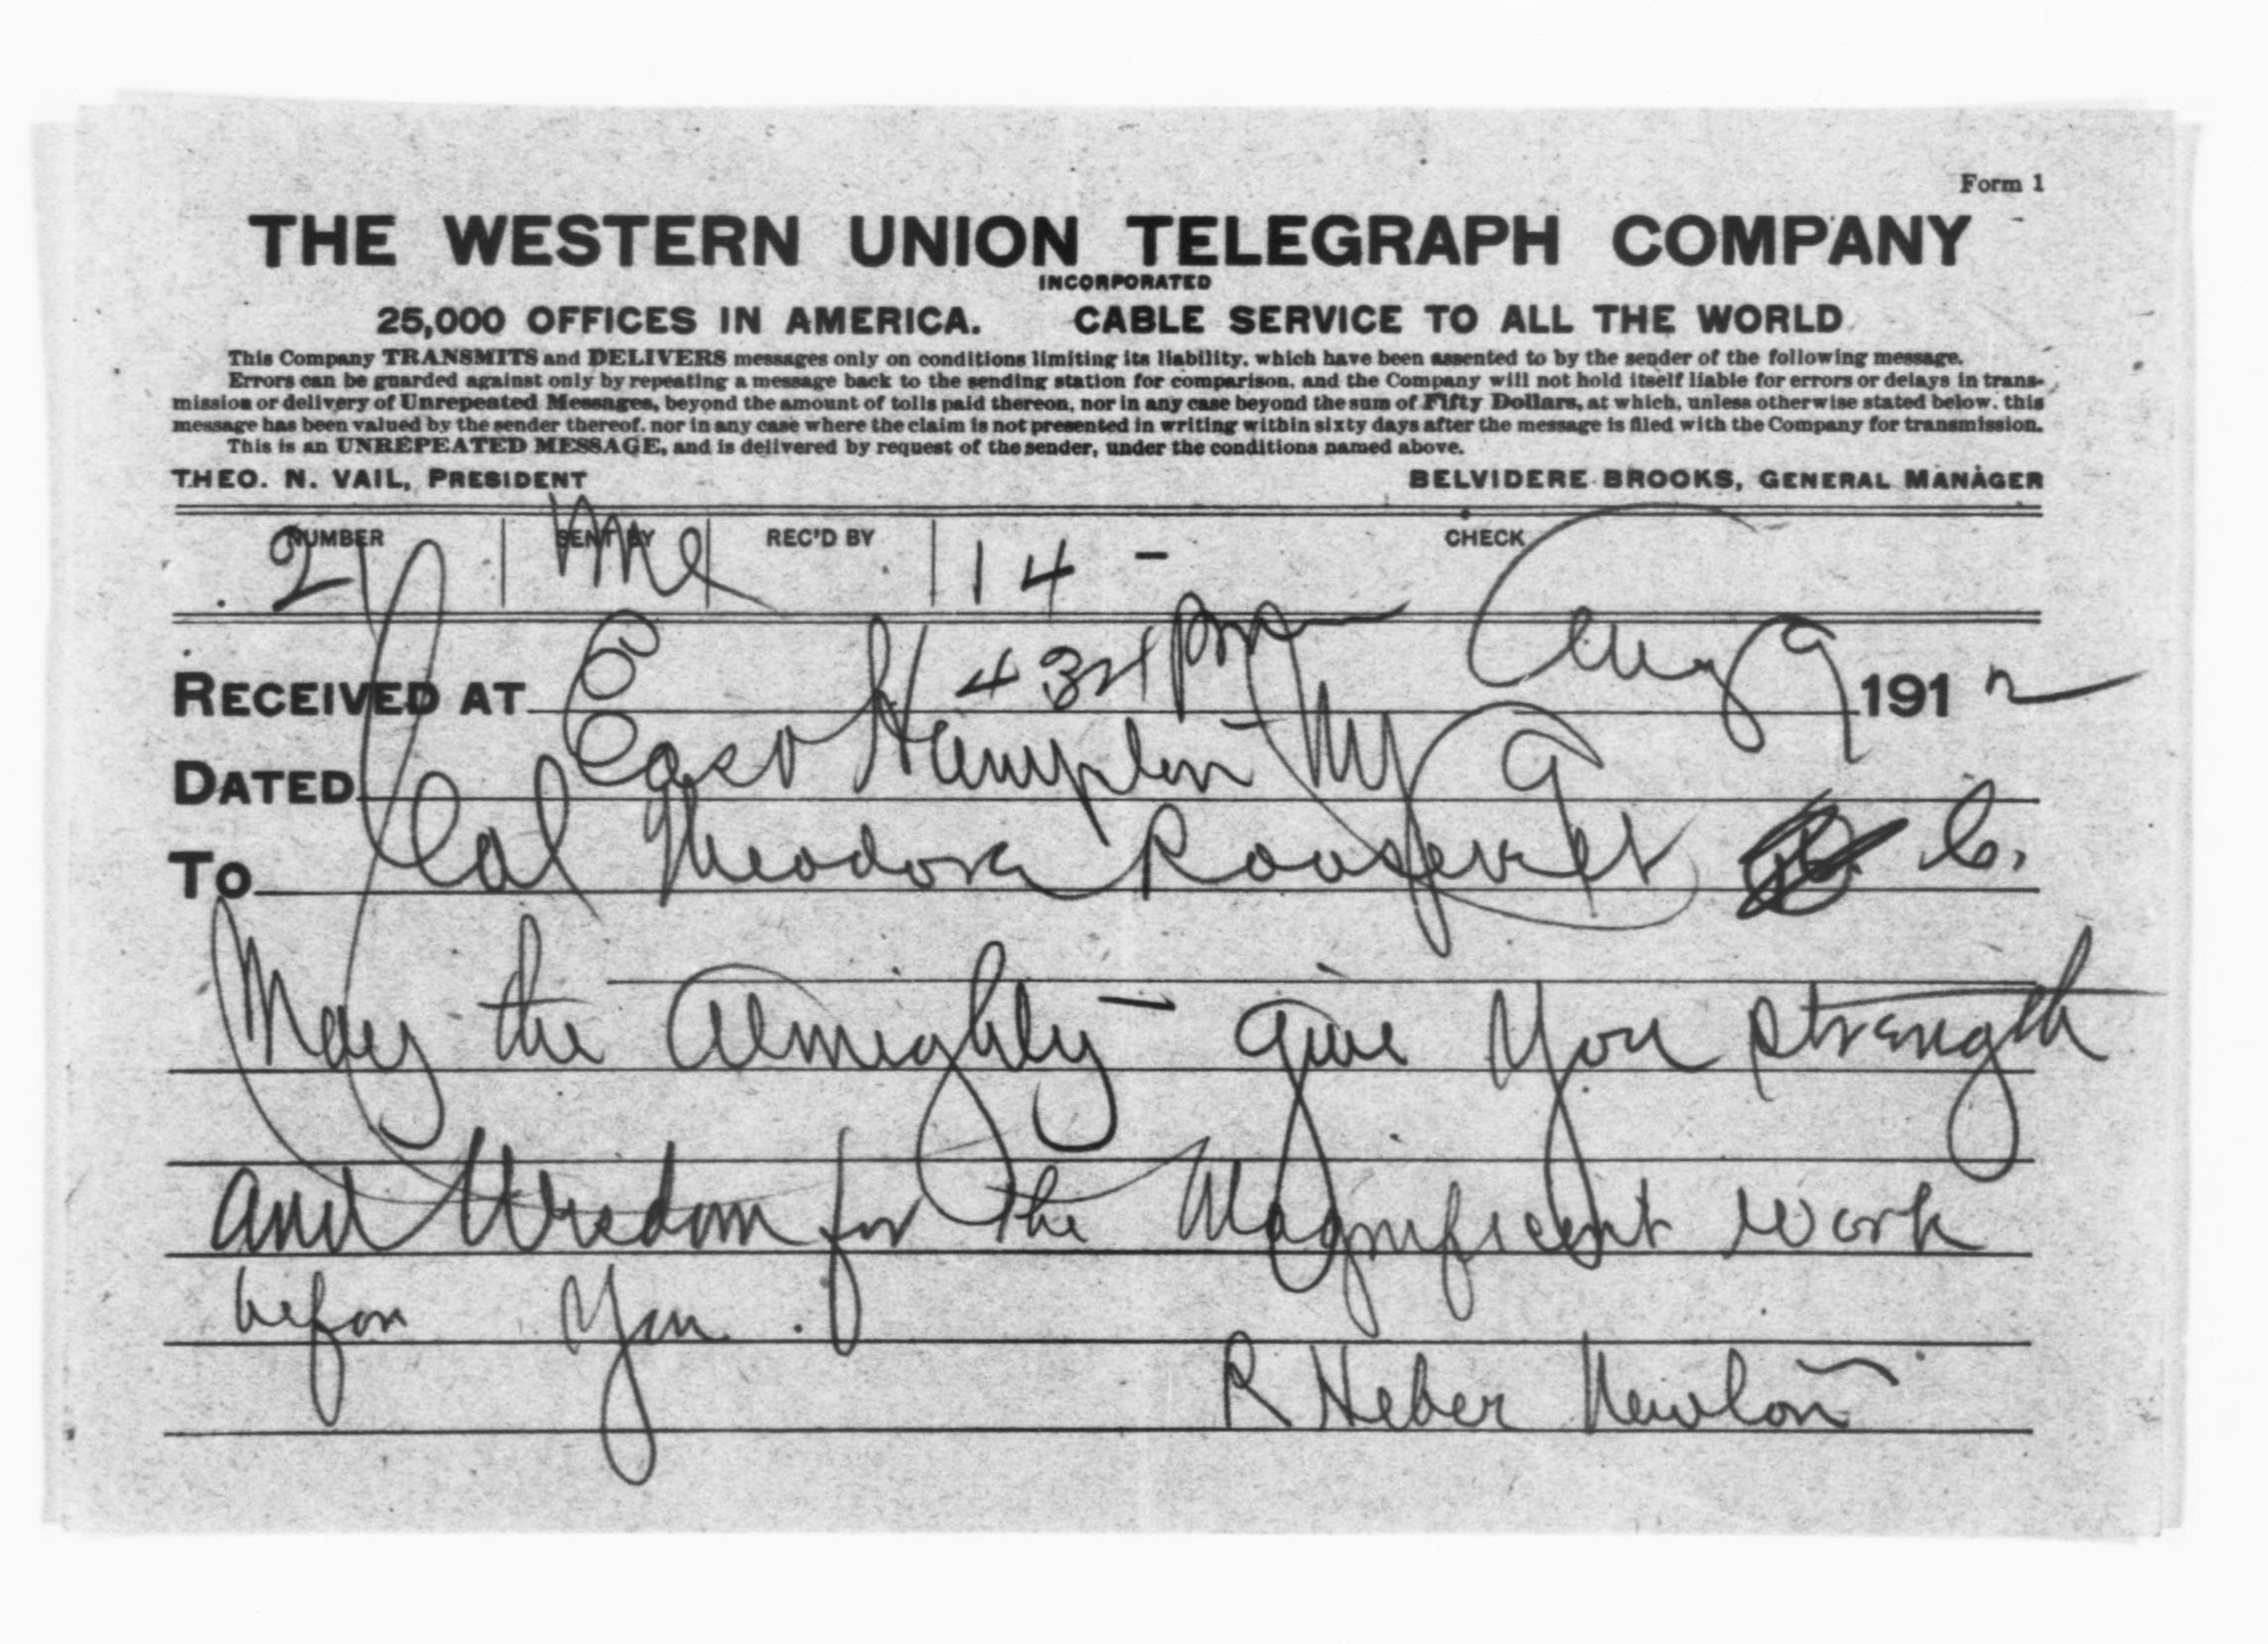 Form 1
THE WESTERN UNION TELEGRAPH COMPANY
INCORPORATED
25,000 OFFICES IN AMERICA. CABLE SERVICE TO ALL THE WORLD
This Company TRANSMITS and DELIVERS messages only on conditions limiting its liability, which have been assented to by the sender of the following message.
Errors can be guarded against only by repeating a message back to the sending station for comparison, and the Company will not hold itself liable for errors or delays in trans-
mission or delivery of Unrepeated Messages, beyond the amount of tolls paid thereon, nor in any case beyond the sum of Fifty Dollars, at which, unless otherwise stated below, this
message has been valued by the sender thereof, nor in any case where the claim is not presented in writing within sixty days after the message is filed with the Company for transmission.
This is an UNREPEATED MESSAGE, and is delivered by request of the sender, under the conditions named above.
THEO. N. VAIL, PRESIDENT BELVIDERE BROOKS, GENERAL MANAGER
NUMBER SENT BY REC'D BY CHECK
21 14 -
RECEIVED AT 434 pm Aug 9 1912
DATED East Hampton NY 9
To Col Theodore Roosevelt
May the Almighty give you strength
and Wisdom for the Magnificent work
before you.
R Heber Newton